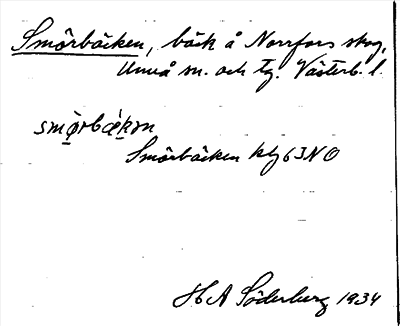 Smörbäcken, bäck å Norrfors skog,
Umeå sn. och tg. Västerb. l.
smö̀rbæ̀kən
Smörbäcken kbl 63 NO
H A Söderberg 1934